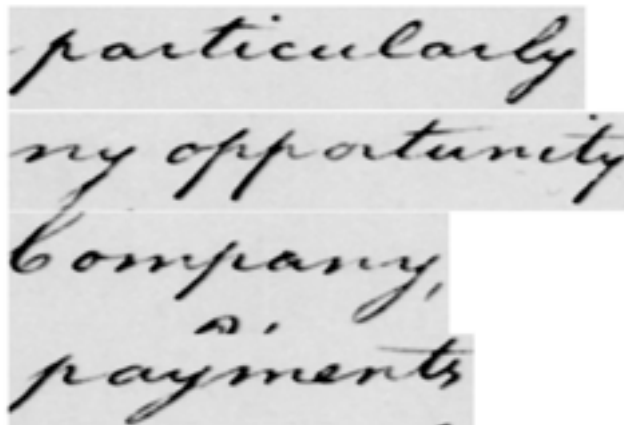 particularly
ny opportunity
Company,
payments